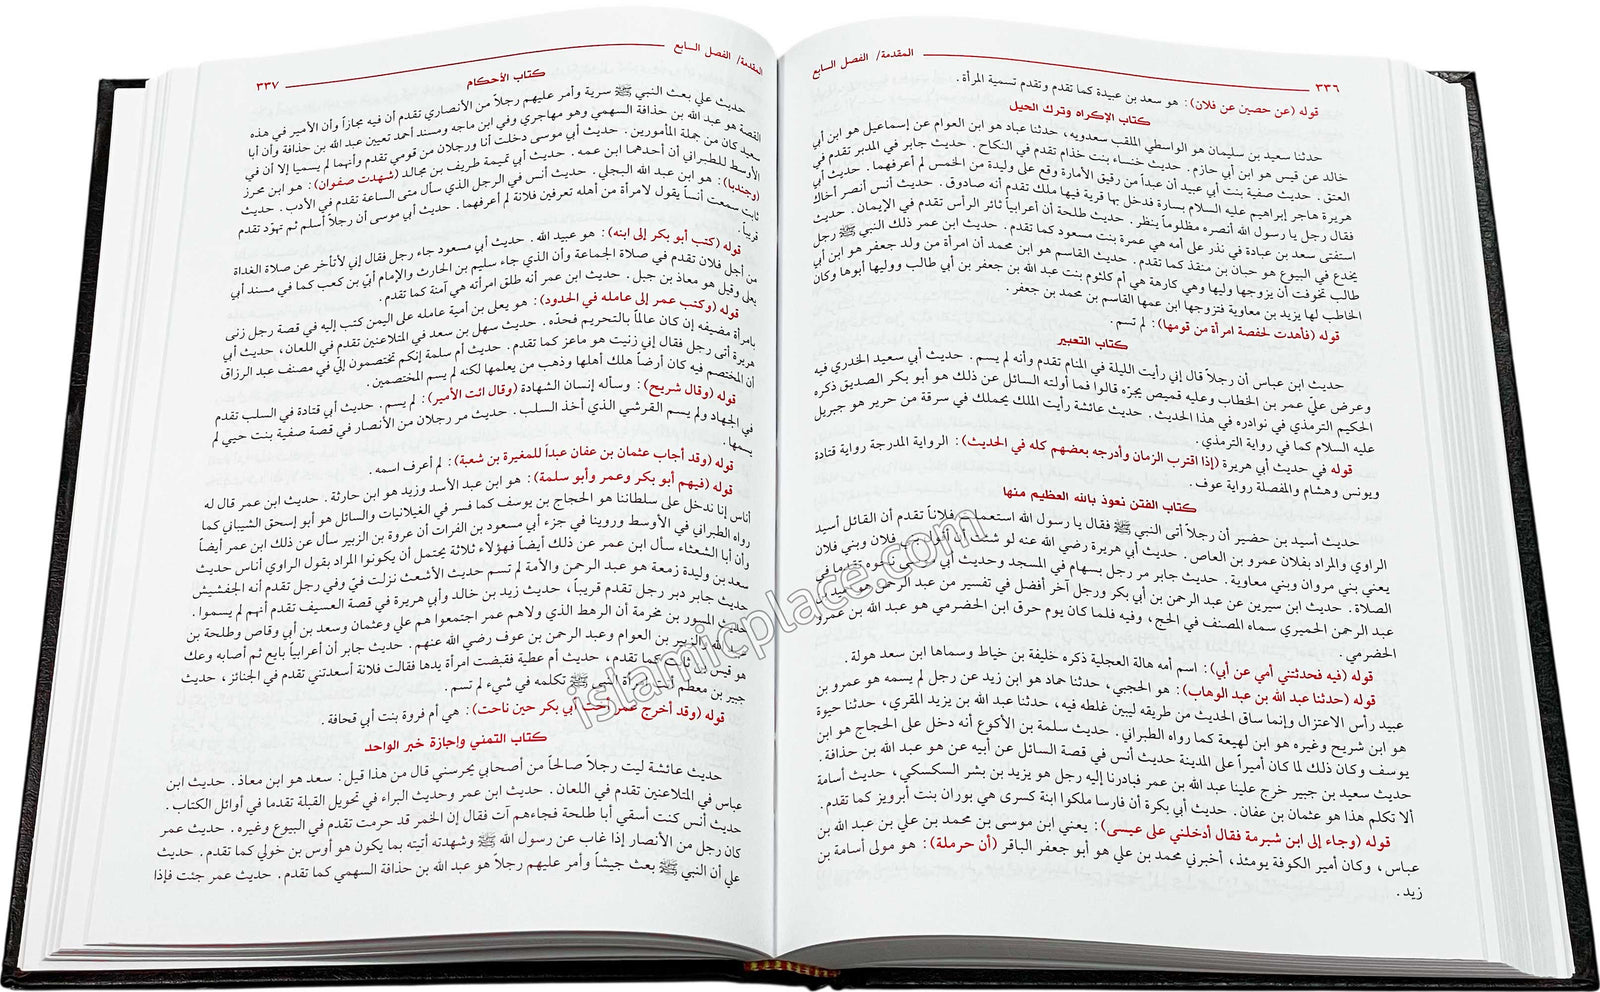 ٣٣٦
المقدمة/ الفصل السابع
قوله (عن حصين عن فلان): هو سعد بن عبيدة كما تقدم وتقدم تسمية المرأة.
كتاب الإكراه وترك الحيل
حدثنا سعيد بن سليمان هو الواسطي الملقب سعدويه، حدثنا عباد هو ابن العوام عن إسماعيل هو ابن أبي
خالد عن قيس هو ابن أبي حازم. حديث خنساء بنت خذام تقدم في النكاح. حديث جابر في المدبر تقدم في
العتق. حديث صفية بنت أبي عبيد أن عبداً من رقيق الأمارة وقع على وليدة من الخمس لم أعرفهما. حديث أبي
هريرة هاجر إبراهيم عليه السلام بسارة فدخل بها قرية فيها ملك تقدم أنه صادوق. حديث أنس أنصر أخاك
فقال رجل يا رسول الله أنصره مظلوماً ينظر. حديث طلحة أن أعرابياً ثائر الرأس تقدم في الإيمان. حديث
استفتى سعد بن عبادة في نذر على أمه هي عمرة بنت مسعود كما تقدم. حديث ابن عمر ذلك النبي ﷺ رجل
يخدع في البيوع هو حبان بن منقذ كما تقدم. حديث القاسم هو ابن محمد أن امرأة من ولد جعفر هو ابن أبي
طالب تخوفت أن يزوجها وليها وهي كارهة هي أم كلثوم بنت عبد الله بن جعفر بن أبي طالب ووليها أبوها وكان
الخاطب لها يزيد بن معاوية فتزوجها ابن عمها القاسم بن محمد بن جعفر.
قوله (فأهدت لحفصة امرأة من قومها): لم تسم.
كتاب التعبير
حديث ابن عباس أن رجلاً قال إني رأيت الليلة في المنام تقدم وأنه لم يسم. حديث أبي سعيد الخدري فيه
وعرض عليّ عمر بن الخطاب وعليه قميص يجرّه قالوا فما أولته السائل عن ذلك هو أبو بكر الصديق ذكره
الحكيم الترمذي في نوادره في هذا الحديث. حديث عائشة رأيت الملك يحملك في سرقة من حرير هو جبريل
عليه السلام كما في رواية الترمذي.
قوله في حديث أبي هريرة (إذا اقترب الزمان وأدرجه بعضهم كله في الحديث): الرواية المدرجة رواية قتادة
ويونس وهشام والمفصلة رواية عوف.
كتاب الفتن نعوذ بالله العظيم منها
حديث أسيد بن حضير أن رجلاً أتى النبي ﷺ فقال يا رسول الله استعملت فلاناً تقدم أن القائل أسيد
الراوي والمراد بفلان عمرو بن العاص. حديث أبي هريرة رضي الله عنه لو شئت أن أقول بني فلان وبني فلان
يعني بني مروان وبني معاوية. حديث جابر مر رجل بسهام في المسجد وحديث أبي موسى نحوه تقدما في
الصلاة. حديث ابن سيرين عن عبد الرحمن بن أبي بكر ورجل آخر أفضل في تفسير من عبد الرحمن هو حميد بن
عبد الرحمن الحميري سماه المصنف في الحج، وفيه فلما كان يوم حرق ابن الحضرمي هو عبد الله بن عمرو
الحضرمي.
قوله (فيه فحدثتني أمي عن أبي): اسم أمه هالة العجلية ذكره خليفة بن خياط وسماها ابن سعد هولة.
قوله (حدثنا عبد الله بن عبد الوهاب): هو الحجبي، حدثنا حماد هو ابن زيد عن رجل لم يسمه هو عمرو بن
عبيد رأس الاعتزال وإنما ساق الحديث من طريقه ليبين غلطه فيه، حدثنا عبد الله بن يزيد المقري، حدثنا حيوة
هو ابن شريح وغيره هو ابن لهيعة كما رواه الطبراني. حديث سلمة بن الأكوع أنه دخل على الحجاج هو ابن
يوسف وكان ذلك لما كان أميراً على المدينة حديث أنس في قصة السائل عن أبيه عن هو عبد الله بن حذافة.
حديث سعيد بن جبير خرج علينا عبد الله بن عمر فبادرنا إليه رجل هو يزيد بن بشر السكسكي، حديث أسامة
ألا تكلم هذا هو عثمان بن عفان. حديث أبي بكرة أن فارسا ملكوا ابنة كسرى هي بوران بنت أبرويز كما تقدم.
قوله (وجاء إلى ابن شبرمة فقال أدخلني على عيسى): يعني ابن موسى بن محمد بن علي بن عبد الله بن
عباس، وكان أمير الكوفة يومئذ، أخبرني محمد بن علي هو أبو جعفر الباقر (أن حرملة): هو مولى أسامة بن
زيد.
المقدمة/ الفصل السابع
٣٣٧
كتاب الأحكام
حديث علي بعث النبي ﷺ سرية وأمر عليهم رجلاً من الأنصاري تقدم أن فيه مجازاً وأن الأمير في هذه
القصة هو عبد الله بن حذافة السهمي وهو مهاجري وفي ابن ماجه ومسند أحمد تعيين عبد الله بن حذافة وأن أبا
سعيد كان من جملة المأمورين. حديث أبي موسى دخلت أنا ورجلان من قومي تقدم وأنهما لم يسميا إلا أن في
الأوسط للطبراني أن أحدهما ابن عمه. حديث أبي تميمة طريف بن مجالد (شهدت صفوان): هو ابن محرز
(وجندبا): هو ابن عبد الله البجلي. حديث أنس في الرجل الذي سأل متى الساعة تقدم في الأدب. حديث
ثابت سمعت أنساً يقول لامرأة من أهله تعرفين فلانة لم أعرفهما. حديث أبي موسى أن رجلاً أسلم ثم تهوّد تقدم
قريباً.
قوله (كتب أبو بكر إلى ابنه): هو عبيد الله. حديث أبي مسعود جاء رجل فقال إني لأتأخر عن صلاة الغداة
من أجل فلان تقدم في صلاة الجماعة وأن الذي جاء سليم بن الحارث والإمام أبيّ بن كعب كما في مسند أبي
يعلى وقيل هو معاذ بن جبل. حديث ابن عمر أنه طلق امرأته هي آمنة كما تقدم.
قوله (وكتب عمر إلى عامله في الحدود): هو يعلى بن أمية عامله على اليمن كتب إليه في قصة رجل زنى
بامرأة مضيفه إن كان عالماً بالتحريم فحدّه. حديث سهل بن سعد في المتلاعنين تقدم في اللعان، حديث أبي
هريرة أتى رجل فقال إني زنيت هو ماعز كما تقدم. حديث أم سلمة إنكم تختصمون إليّ في مصنف عبد الرزاق
أن المختصم فيه كان أرضاً هلك أهلها وذهب من يعلمها لكنه لم يسم المختصمين.
قوله (وقال شريح): وسأله إنسان الشهادة (وقال ائت الأمير): لم يسم. حديث أبي قتادة في السلب تقدم
في الجهاد ولم يسم القرشي الذي أخذ السلب. حديث مر رجلان من الأنصار في قصة صفية بنت حيي لم
يسمها.
قوله (وقد أجاب عثمان بن عفان عبداً للمغيرة بن شعبة): لم أعرف اسمه.
قوله (فيهم أبو بكر وعمر وأبو سلمة): هو ابن عبد الأسد وزيد هو ابن حارثة. حديث ابن عمر قال له
أناس إنا ندخل على سلطاننا هو الحجاج بن يوسف كما فسر في الغيلانيات والسائل هو أبو إسحق الشيباني كما
رواه الطبراني في الأوسط وروينا في جزء أبي مسعود بن الفرات أن عروة بن الزبير سأل عن ذلك ابن عمر أيضاً
وأن أبا الشعثاء سأل ابن عمر عن ذلك أيضاً فهؤلاء ثلاثة يحتمل أن يكونوا المراد بقول الراوي أناس حديث
سعد بن وليدة زمعة هو عبد الرحمن والأمة لم تسم حديث الأشعث نزلت فيّ وفي رجل تقدم أنه الجفشيش
حديث جابر دبر رجل تقدم قريباً، حديث زيد بن خالد وأبي هريرة في قصة العسيف تقدم أنهم لم يسموا.
حديث المسور بن مخرمة أن الرهط الذي ولاهم عمر اجتمعوا هم علي وعثمان وسعد بن أبي وقاص وطلحة بن
عبيد الله والزبير بن العوام وعبد الرحمن بن عوف رضي الله عنهم. حديث جابر أن أعرابياً بايع ثم أصابه وعك
هو قيس كما تقدم، حديث أم عطية فقبضت امرأة يدها فقالت فلانة أسعدتني تقدم في الجنائز، حديث
جبير بن معطم امرأة النبي ﷺ تكلمه في شيء لم تسم.
قوله (وقد أخرج عمر أخت أبي بكر حين ناحت): هي أم فروة بنت أبي قحافة.
كتاب التمني وإجازة خبر الواحد
حديث عائشة ليت رجلاً صالحاً من أصحابي يحرسني قال من هذا قيل: سعد هو ابن معاذ. حديث ابن
عباس في المتلاعنين تقدم في اللعان. حديث ابن عمر وحديث البراء في تحويل القبلة تقدما في أوائل الكتاب.
حديث أنس كنت أسقي أبا طلحة فجاءهم آت فقال إن الخمر قد حرمت تقدم في البيوع وغيره. حديث عمر
كان رجل من الأنصار إذا غاب عن رسول الله ﷺ وشهدته أتيته بما يكون هو أوس بن خولي كما تقدم. حديث
علي أن النبي ﷺ بعث جيشاً وأمر عليهم رجلاً هو عبد الله بن حذافة السهمي كما تقدم. حديث عمر جئت فإذا
islamicplace.com